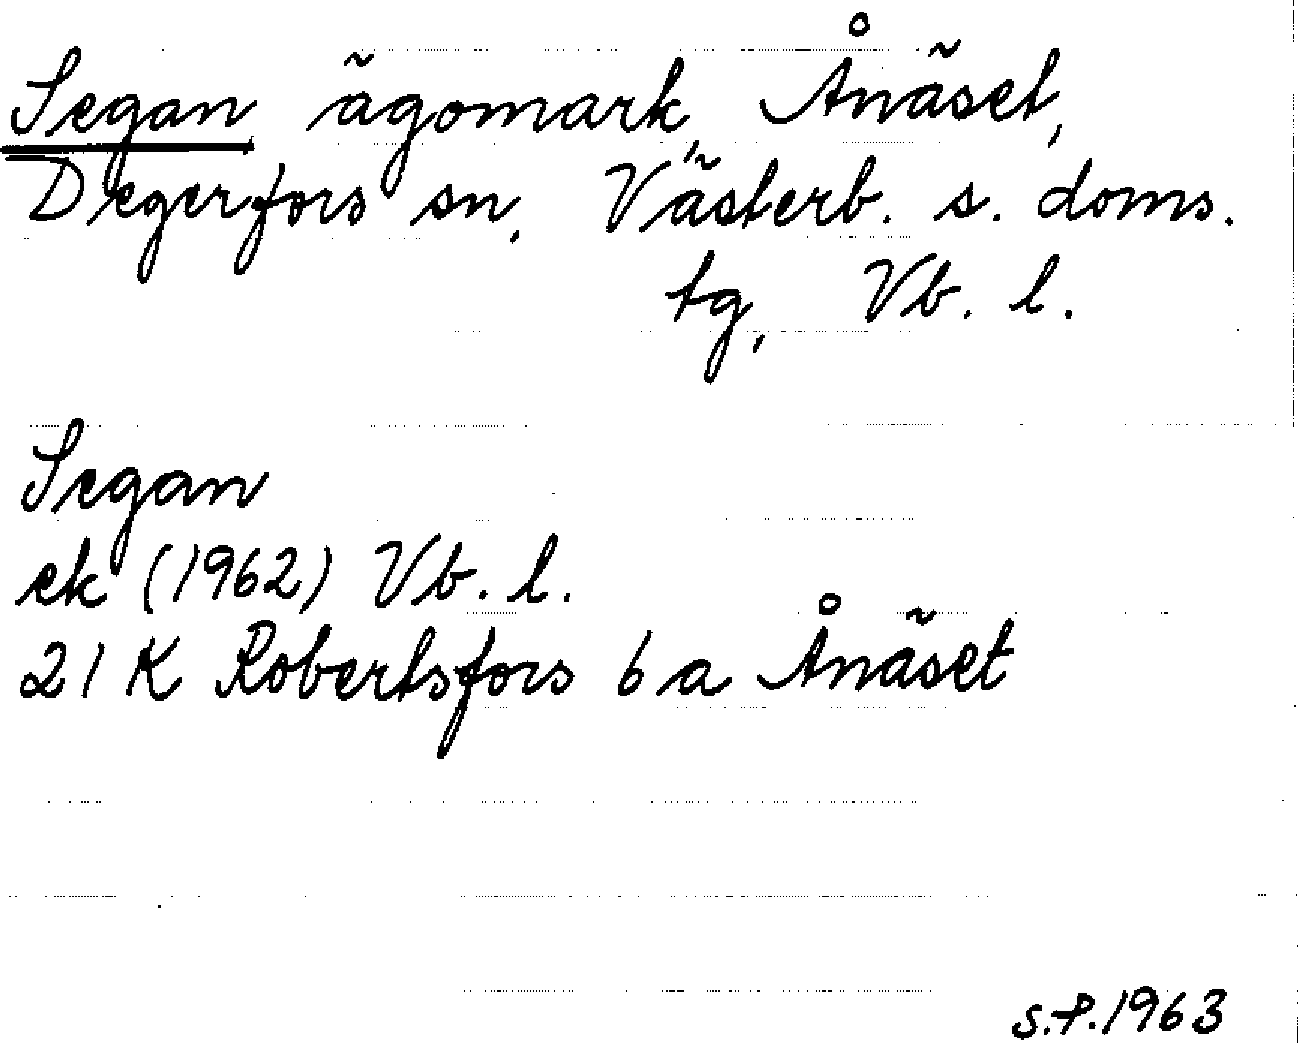 Segan ägomark, Ånäset,
Degerfors sn, Västerb. s. doms.
tg, Vb. l.
Segan
ek (1962) Vb. l.
21 K Robertsfors 6 a Ånäset
S.P. 1963